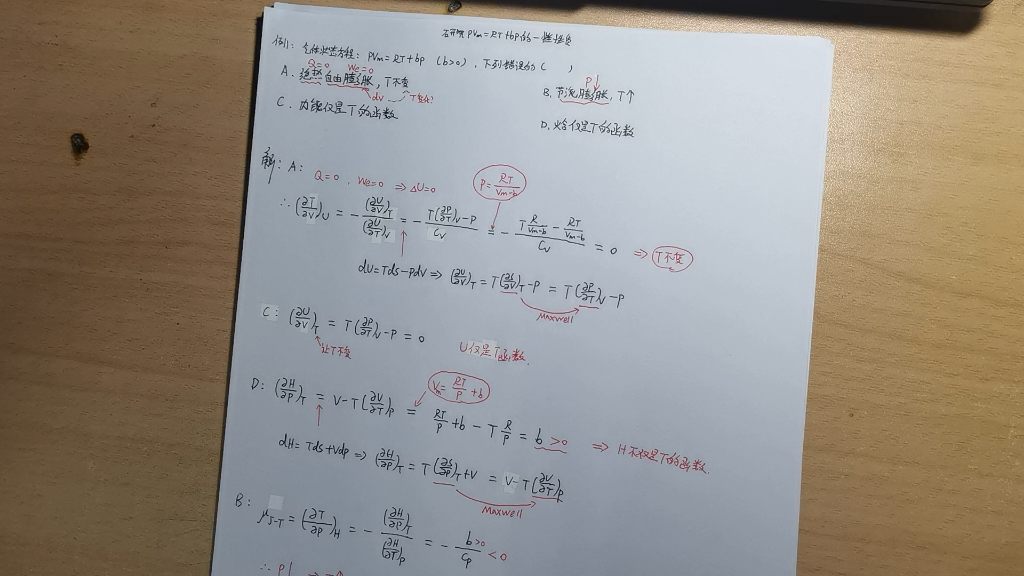 研究 pVm=RT+bp 的一些性质
例1: 气体状态方程: pVm=RT+bp (b>0), 下列错误的( )
Q=0 We=0
A. 绝热自由膨胀, T不变
dV T变化?
p↓
B. 节流膨胀, T↑
C. 内能仅是T的函数
D. 焓仅是T的函数
解: A: Q=0, We=0 ⇒ ΔU=0
p=RT/(Vm-b)
∴ (∂T/∂V)U = -(∂U/∂V)T/(∂U/∂T)V = -(T(∂p/∂T)V-p)/CV = -(T R/(Vm-b) - RT/(Vm-b))/CV = 0 ⇒ T不变
dU=Tds-pdV ⇒ (∂U/∂V)T = T(∂S/∂V)T-p = T(∂p/∂T)V-p
Maxwell
C: (∂U/∂V)T = T(∂p/∂T)V-p = 0 U仅是T函数
让T不变
Vm=RT/p+b
D: (∂H/∂p)T = V-T(∂V/∂T)p = RT/p+b-T R/p = b >0 ⇒ H不仅是T的函数.
dH=Tds+Vdp ⇒ (∂H/∂p)T = T(∂S/∂p)T+V = V-T(∂V/∂T)p
Maxwell
B:
μJ-T = (∂T/∂p)H = -(∂H/∂p)T/(∂H/∂T)p = -b>0/Cp <0
∴ p↓ ⇒